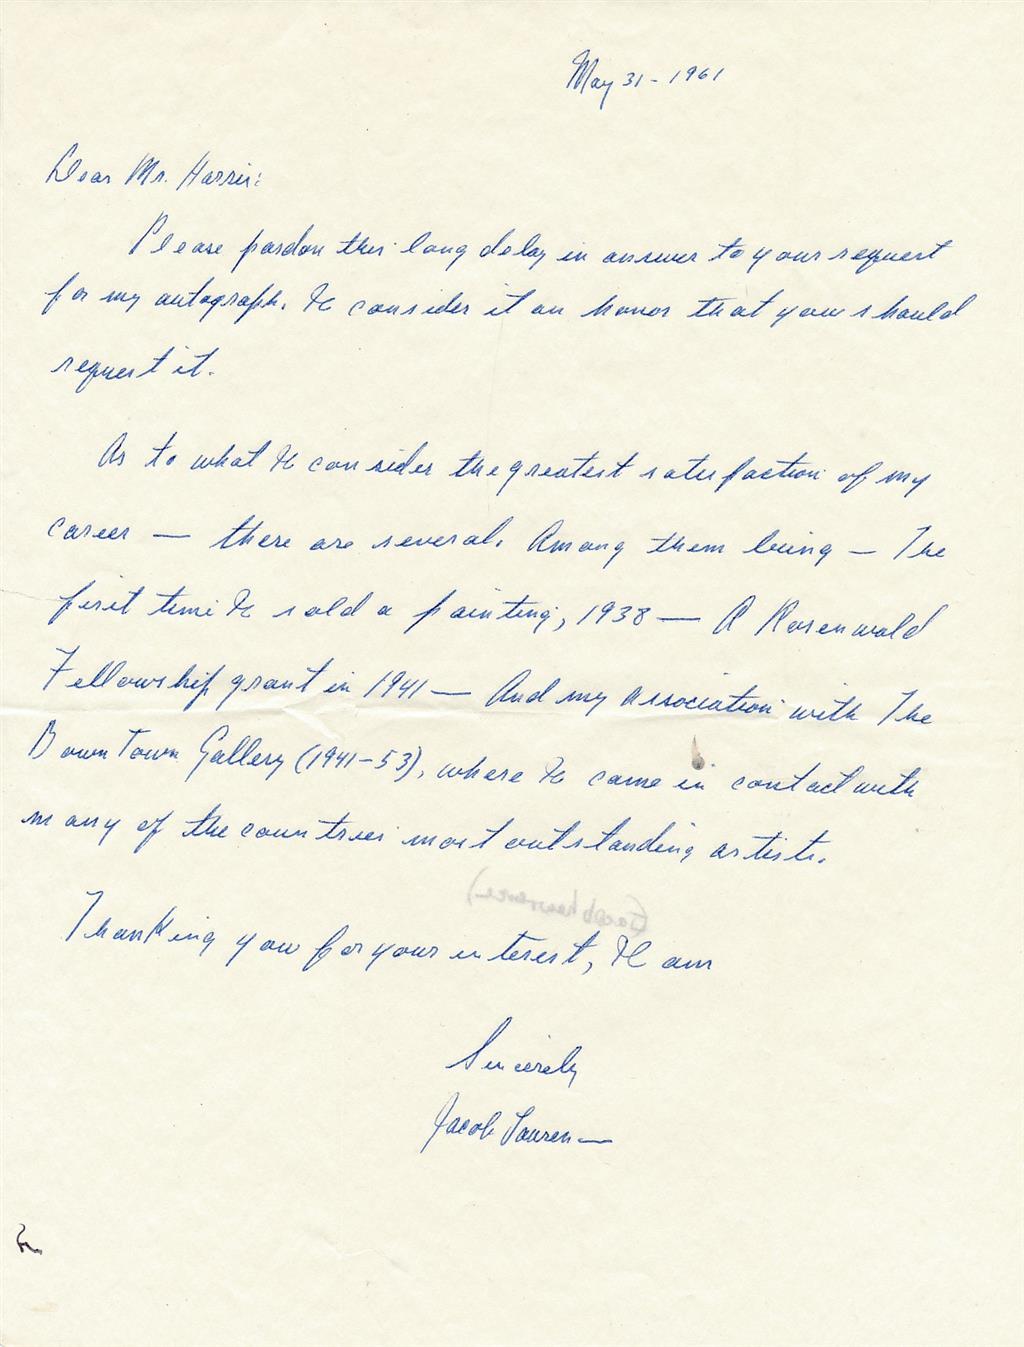 May 31 - 1961
Dear Mr. Harris:
Please pardon this long delay in answer to your request
for my autograph. I consider it an honor that you should
request it.
As to what I consider the greatest satisfaction of my
career — there are several. Among them being — The
first time I sold a painting, 1938 — A Rosenwald
Fellowship grant in 1941 — And my association with The
DownTown Gallery (1941-53), where I came in contact with
many of the countries most outstanding artists.
(Jacob Lawrence)
Thanking you for your interest, I am
Sincerely
Jacob Lawrence